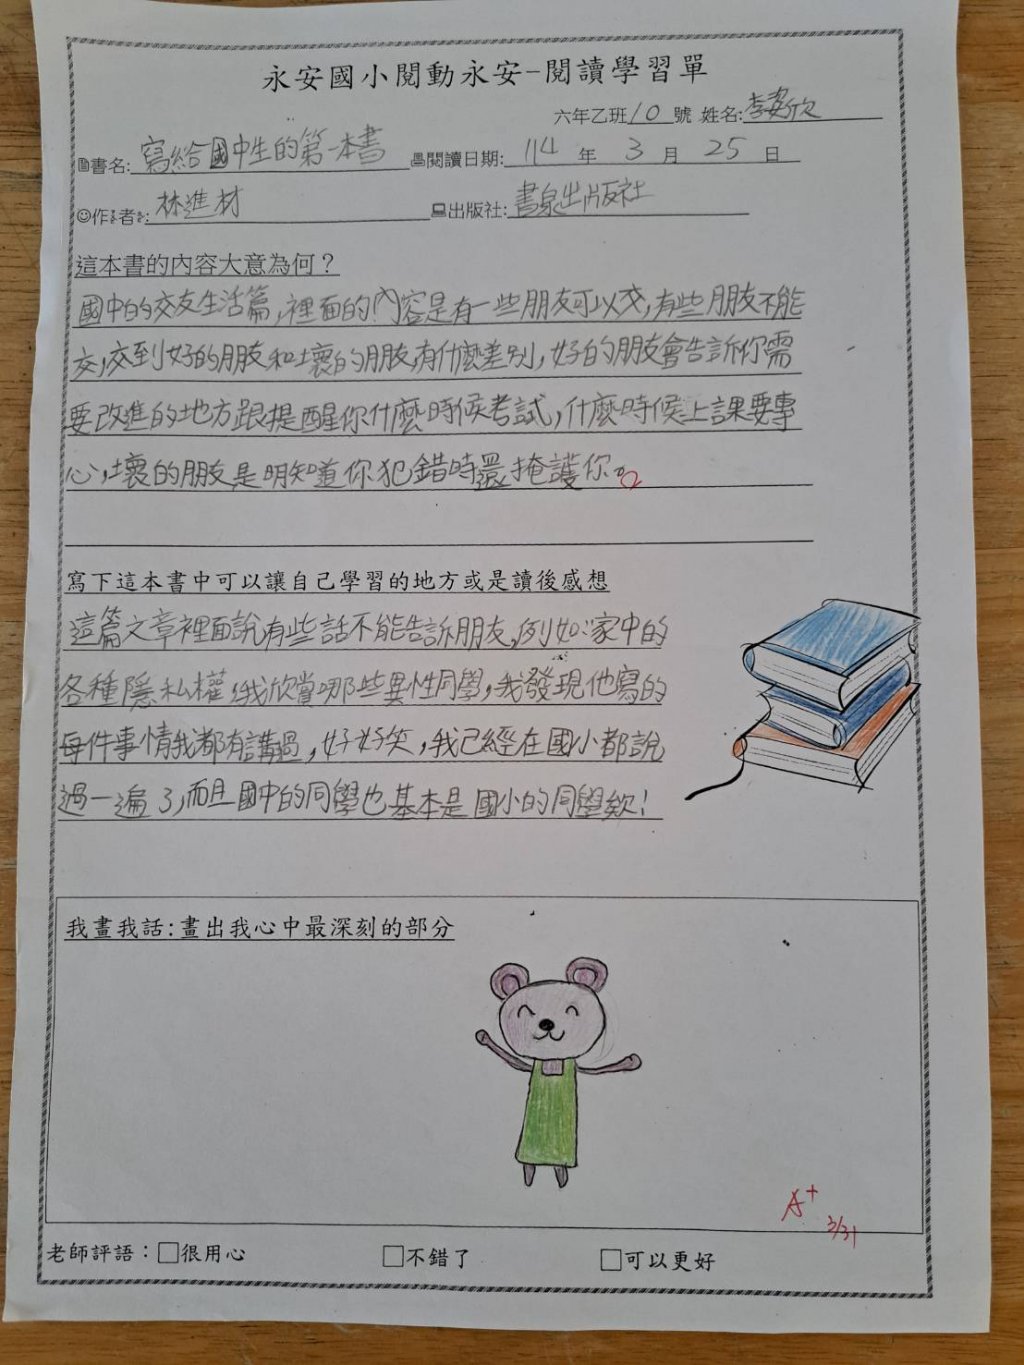 永安國小閱動永安-閱讀學習單
六年乙班10號 姓名:李姿欣
書名:寫給國中生的第一本書 閱讀日期:114年3月25日
作者:林進材 出版社:書泉出版社
這本書的內容大意為何？
國中的交友生活篇,裡面的內容是有一些朋友可以交,有些朋友不能
交,交到好的朋友和壞的朋友,有什麼差別,好的朋友會告訴你需
要改進的地方跟提醒你什麼時候考試,什麼時候上課要專
心,壞的朋友是明知道你犯錯時還掩護你。
寫下這本書中可以讓自己學習的地方或是讀後感想
這篇文章裡面說有些話不能告訴朋友,例如:家中的
各種隱私權,我欣賞哪些異性同學,我發現他寫的
每件事情我都有講過,好好笑,我已經在國小都說
過一遍了,而且國中的同學也基本是國小的同學欸!
我畫我話:畫出我心中最深刻的部分
A+
3/31
老師評語：□很用心 □不錯了 □可以更好